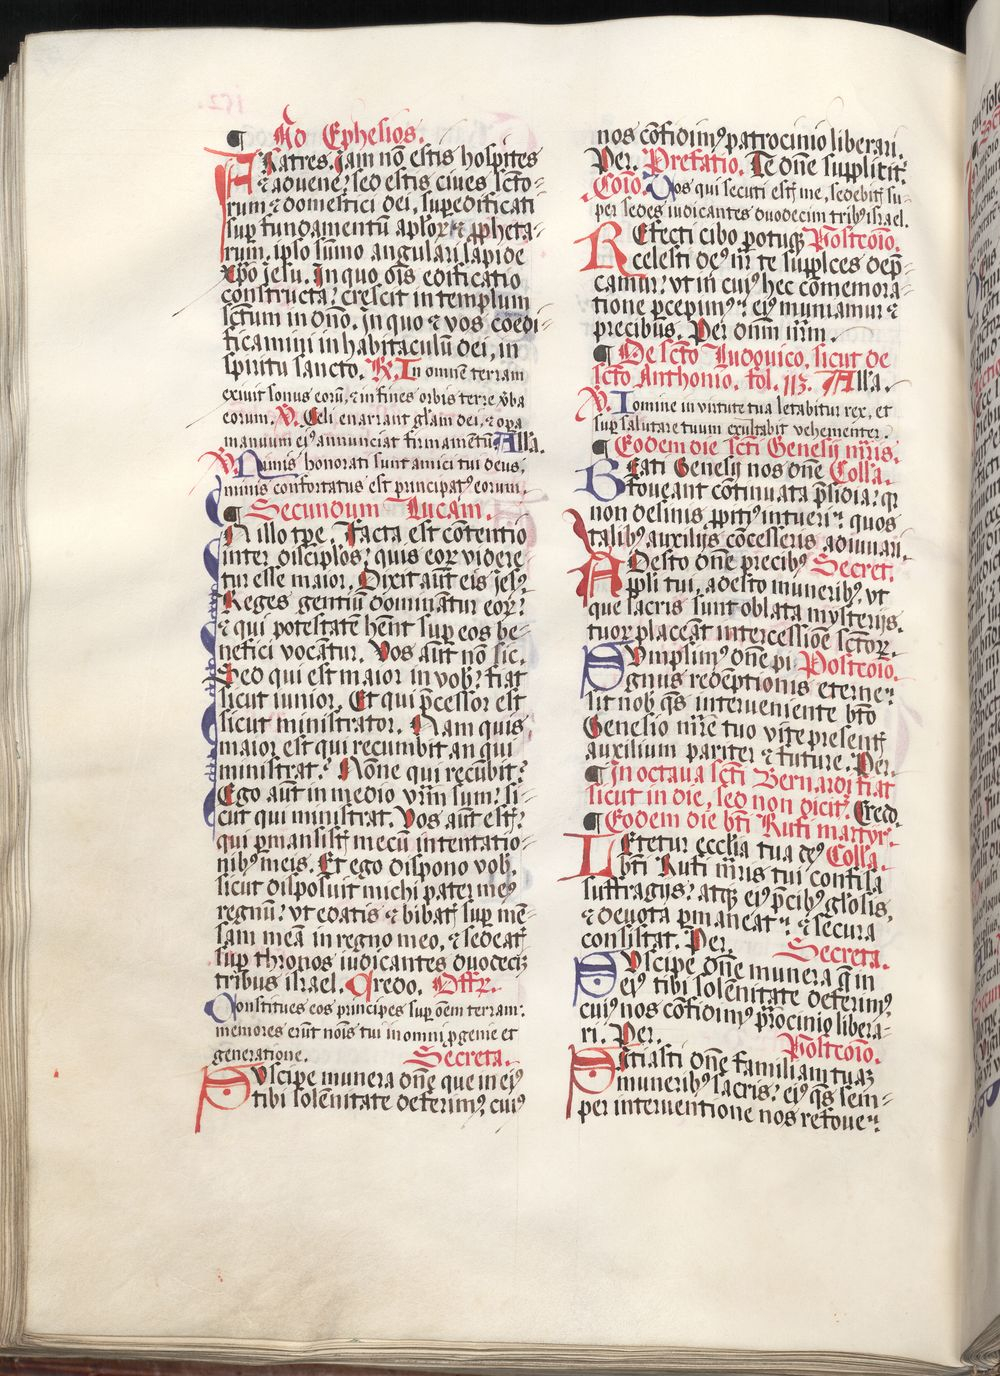 ¶ Ad Ephesios.
Fratres. Jam nõ estis hospites
⁊ aduene: sed estis ciues scto-
rum ⁊ domestici dei, supedificati
sup fundamentũ aploꝝ ⁊ ꝓpheta-
rum, ipso sũmo angulari lapide
xp̃o jesu. In quo oĩs edificatio
constructa: crescit in templum
sctum in dño. In quo ⁊ vos coedi-
ficamini in habitaculũ dei, in
spiritu sancto. R. In omnem terram
exiuit sonus eorũ, ⁊ in fines orbis terre v̾ba
eorum. V. Celi enarrant gľam dei, ⁊ oꝑa
manuum eiꝰ annunciat firmamentũ Alla.
V. Nimis honorati sunt amici tui deus,
nimis confortatus est principatꝰ eorum.
¶ Secundum Lucam.
In illo tꝑe. Facta est cõtentio
inter disciplos: quis eoꝝ videre
tur esse maior. Dixit aũt eis jesꝰ
Reges gentiũ dominãtur eoꝝ:
⁊ qui potestatẽ hẽnt sup eos be-
nefici vocãtur. Vos aũt nõ sic.
Sed qui est maior in vob: fiat
sicut iunior. Et qui p̃cessor est
sicut ministrator. Nam quis
maior est qui recumbit an qui
ministrat? Nõne qui recũbit?
Ego aũt in medio vr̃m sum: si-
cut qui ministrat. Vos aũt estꝭ:
qui ꝑmansistꝭ mecũ in tentatio-
nibꝰ meis. Et ego dispono vob,
sicut disposuit michi pater meꝰ
regnũ: vt edatis ⁊ bibatꝭ sup mẽ-
sam meã in regno meo, ⁊ sedeatꝭ
sup thronos iudicantes duodecĩ
tribus israel. Credo. Offꝝ.
Constitues eos principes sup oẽm terram:
memores erũt noĩs tui in omni ꝓgenie et
generatione. Secreta.
Suscipe munera dñe que in eiꝰ
tibi solẽnitate deferimꝰ, cuiꝰ
nos cõfidimꝰ patrocinio liberari.
Per. Prefatio. Te dñe suppliciť.
Coĩo. Vos qui secuti estꝭ me, sedebitꝭ su-
per sedes iudicantes duodecim tribꝰ israel.
Refecti cibo potuqꝫ Postcoĩo.
celesti deꝰ nr̃ te supplices dep̃-
camur: vt in cuiꝰ hec cõmemora-
tione ꝑcepimꝰ: eiꝰ muniamur ⁊
precibus. Per dñm nr̃m.
¶ De sctõ Ludouico, sicut de
sctõ Anthonio. fol. 113. Alla.
V. Domine in virtute tua letabitur rex, et
sup salutare tuum exultabit vehementer.
¶ Eodem die sctĩ Genesij mr̃is.
Beati Genesij nos dñe Colľa.
foueant cõtinuata p̃sidia: qꝛ
non desinis ꝓpitiꝰ intueri: quos
talibꝰ auxilijs cõcesseris adiuuari.
Adesto dñe precibꝰ Secret.
ppľi tui, adesto muneribꝰ, vt
que sacris sunt oblata mysterijs,
tuoꝝ placeãt intercessiõe sctõꝝ.
Sumpsimꝰ dñe pi Postcoĩo.
gnus redẽptionis eterne:
sit nob qs̃ interueniente btõ
Genesio mr̃e tuo vite presentꝭ
auxilium pariter ⁊ future. Per.
¶ In octaua sctĩ Bernardi fiat
sicut in die, sed non diciť Credo.
¶ Eodem die btĩ Rufi martyr̃.
Letetur ecclia tua dẽꝰ Colľa.
btĩ Rufi mr̃is tui confisa
suffragijs: atqꝫ eiꝰ p̃cibꝰ glõsis,
⁊ deuota ꝑmaneat: ⁊ secura
consistat. Per. Secreta.
Suscipe dñe munera q̃ in
eiꝰ tibi solẽnitate deferimꝰ,
cuiꝰ nos cõfidimꝰ pr̃ocinio libera-
ri. Per. Postcoĩo.
Satiasti dñe familiam tuaꝫ
muneribꝰ sacris: eiꝰ qs̃ sem-
per interuentione nos refoue: